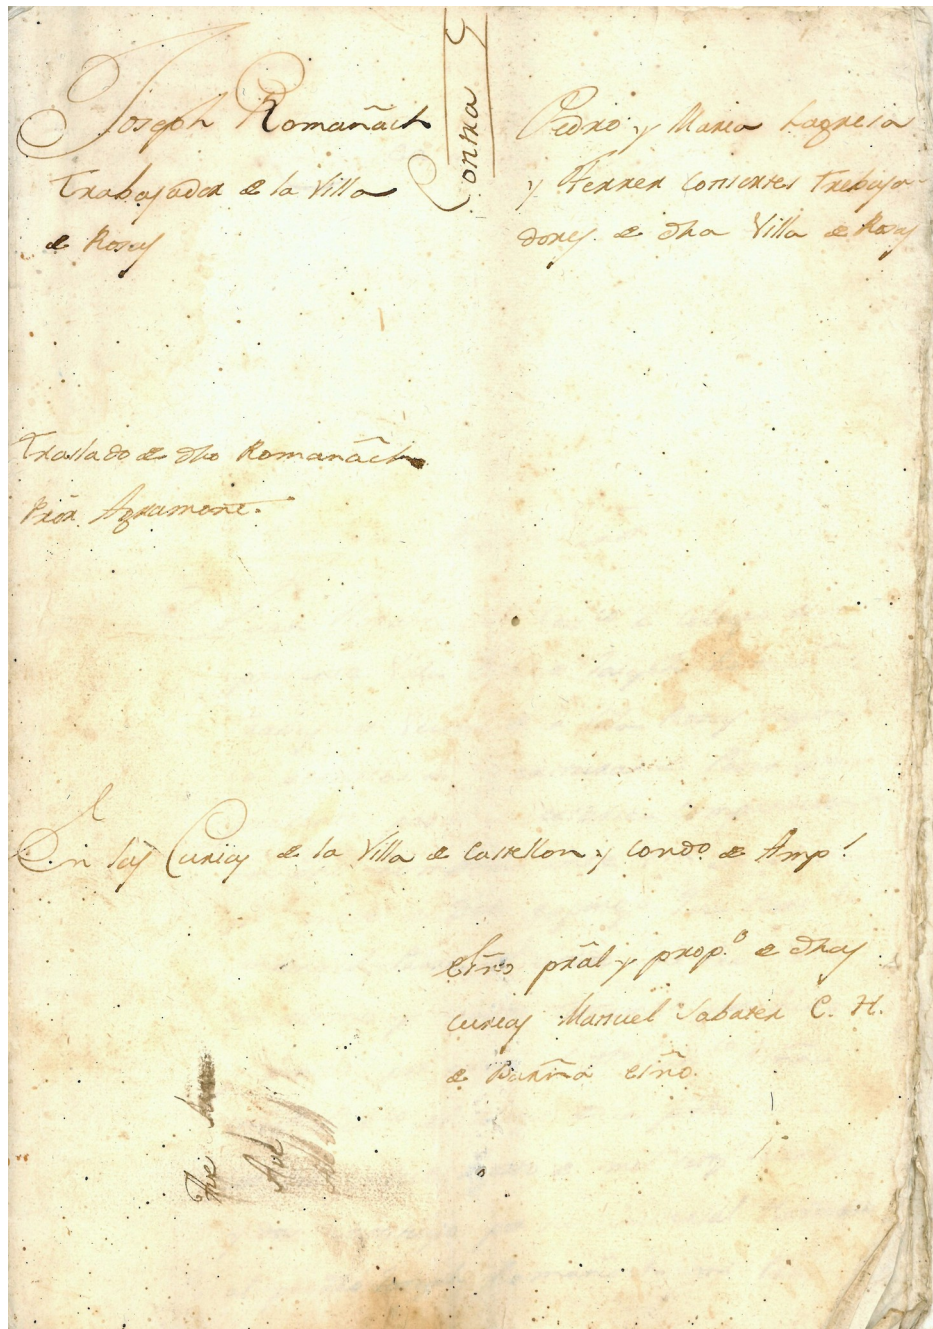 Joseph Romañach
Trabajador de la Villa
de Rosas
Contra
Pedro y Maria Lagresa
y Ferrer Consortes Trebaja-
dores de dha Villa de Rosas
Traslado de dho Romañach
Pror. Agramont.
En las Curias de la Villa de Castellon y Condo. de Amp.
Esño prãl y propº. de dhas
curias Manuel Sabater C. H.
de Barña esño.
Ave
Ave